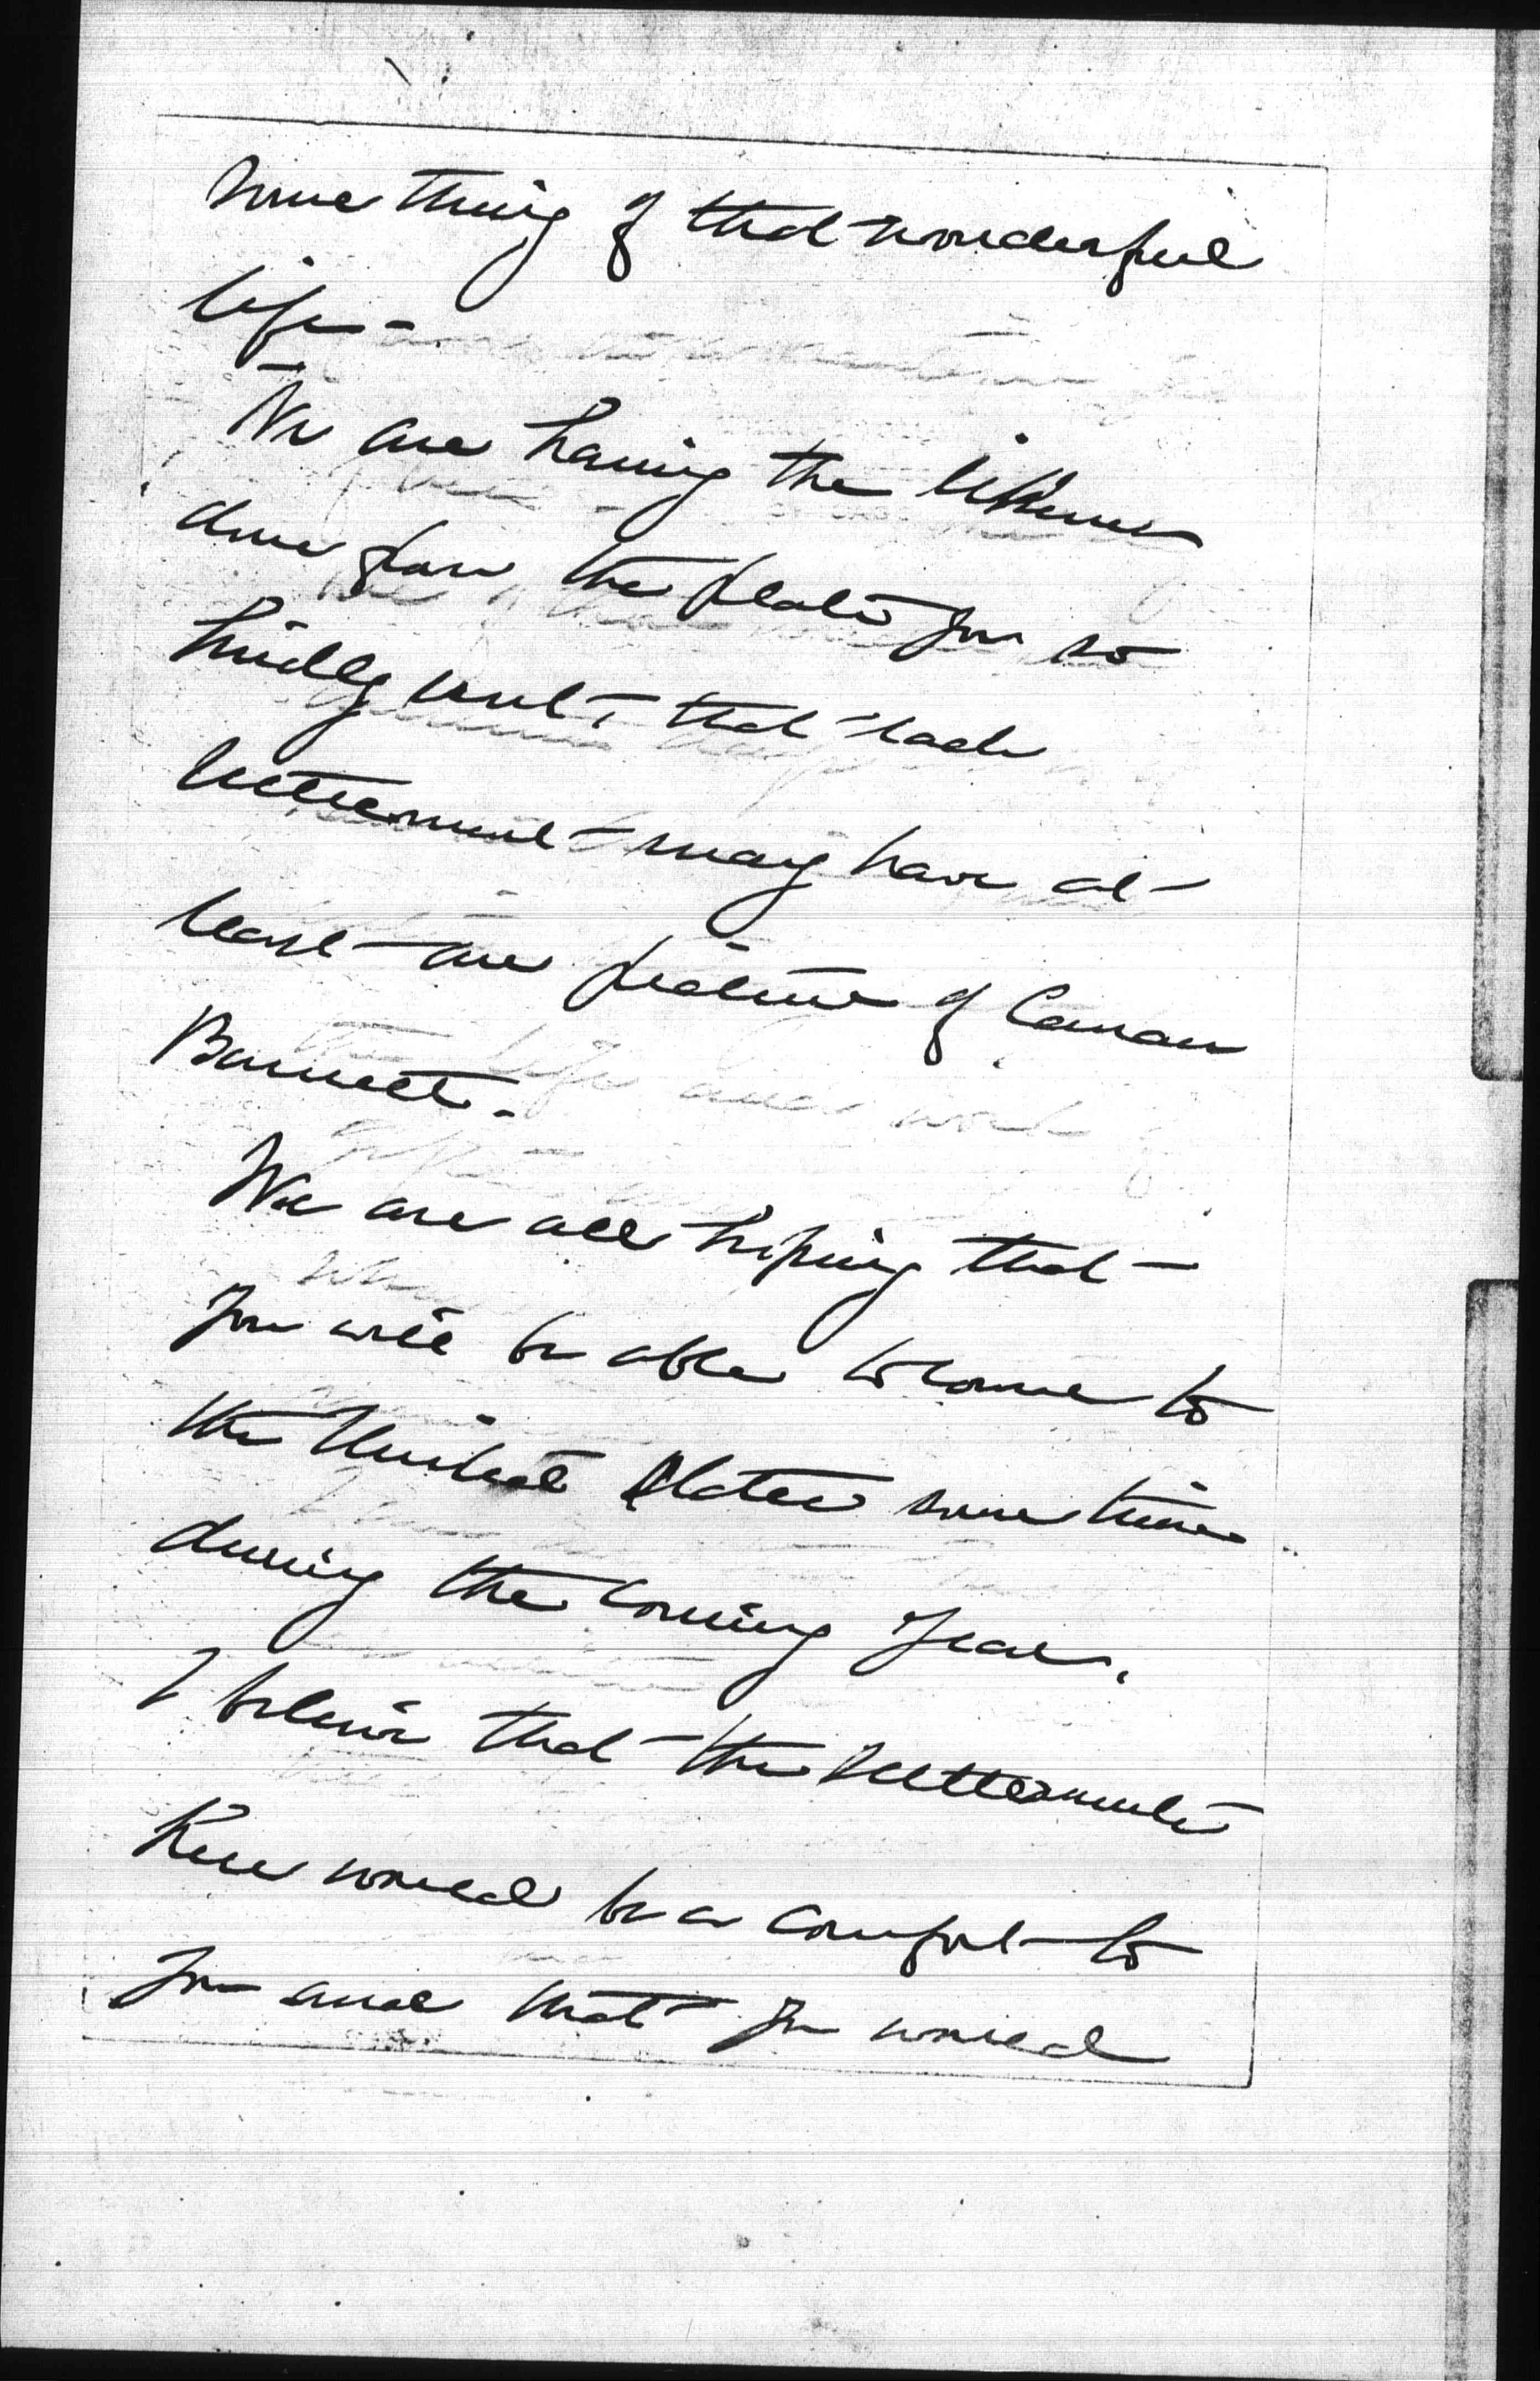 something of that wonderful
life -
We are having the likeness
done from the plate you so
kindly sent, that each
settlement may have at
least one picture of Canon
Barnett.
We are all hoping that
you will be able to come to
the United States some time
during the coming year.
I believe that the settlements
here would be a comfort to
you and that you would